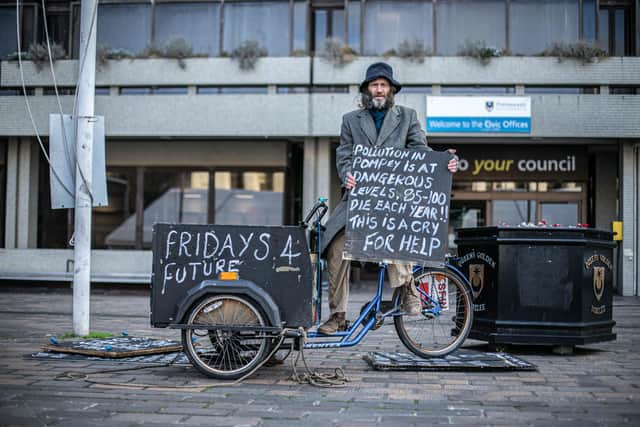 Portsmouth
Welcome to the Civic Offices
to your council
POLLUTION IN
POMPEY IS AT
DANGEROUS
LEVELS. 85-100
DIE EACH YEAR!!
THIS IS A CRY
FOR HELP
FRIDAYS 4
FUTURE